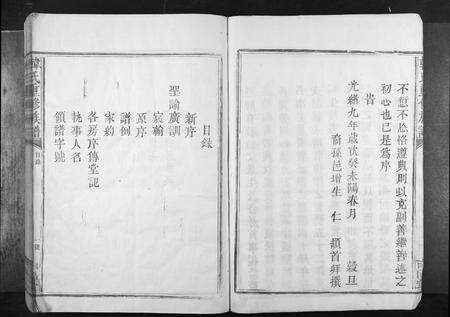 不愆不忘恪遵典則以克副善繼善述之
初心也已是爲序
時
光緒九年歲次癸未陽春月 穀旦
裔孫邑增生 仁 頓首拜撰
目錄
新序
聖諭廣訓
宸翰
原序
譜例
宗約
各房序傳堂記
執事人名
領譜字號
韓氏重修族譜
目錄